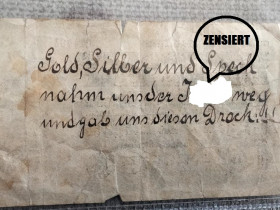 ZENSIERT
Gold, Silber und Speck
nahm uns der J weg
und gab uns diesen Dreck!!